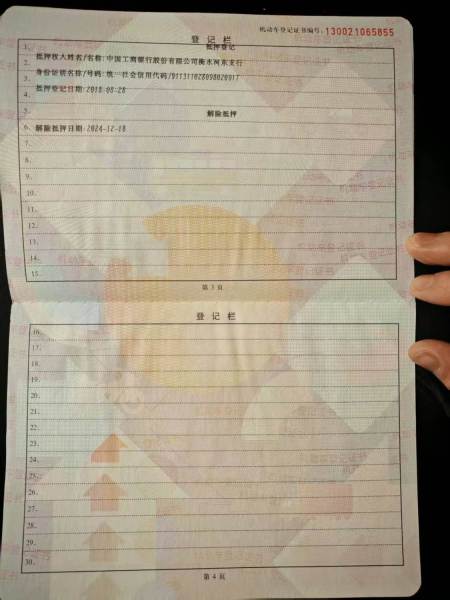 机动车登记证书编号: 130021065855
登记栏
1. 抵押登记
2. 抵押权人姓名/名称:中国工商银行股份有限公司衡水河东支行
3. 身份证明名称/号码:统一社会信用代码/911311028098020917
4. 抵押登记日期:2018-08-28
5. 解除抵押
6. 解除抵押日期:2024-12-18
7.
8.
9.
10.
11.
12.
13.
14.
15.
第 3 页
登记栏
16.
17.
18.
19.
20.
21.
22.
23.
24.
25.
26.
27.
28.
29.
30.
第 4 页